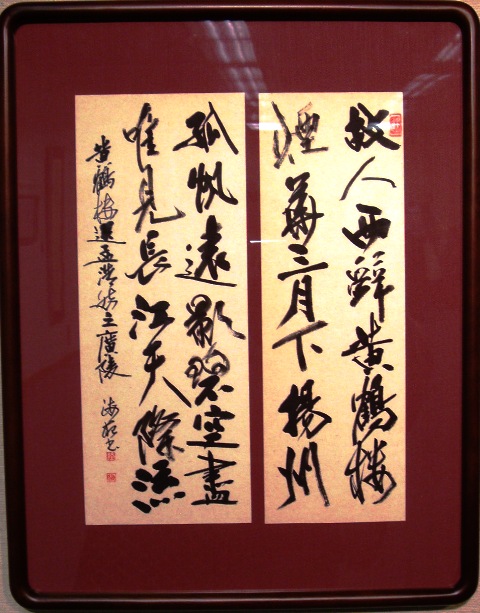 故人西辭黄鶴楼
煙華三月下揚州
孤帆遠影碧空盡
唯見長江天際流
黄鶴楼送孟浩然之廣陵